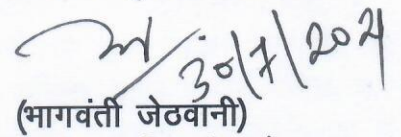 30/7/2021
(भागवंती जेठवानी)